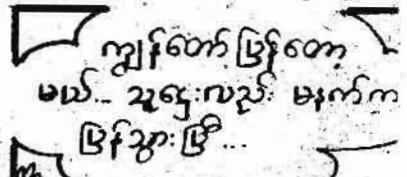 ကျွန်တော် ပြန်တော့
မယ်... သူဌေးလည်း မနက်က
ပြန်သွားပြီ...